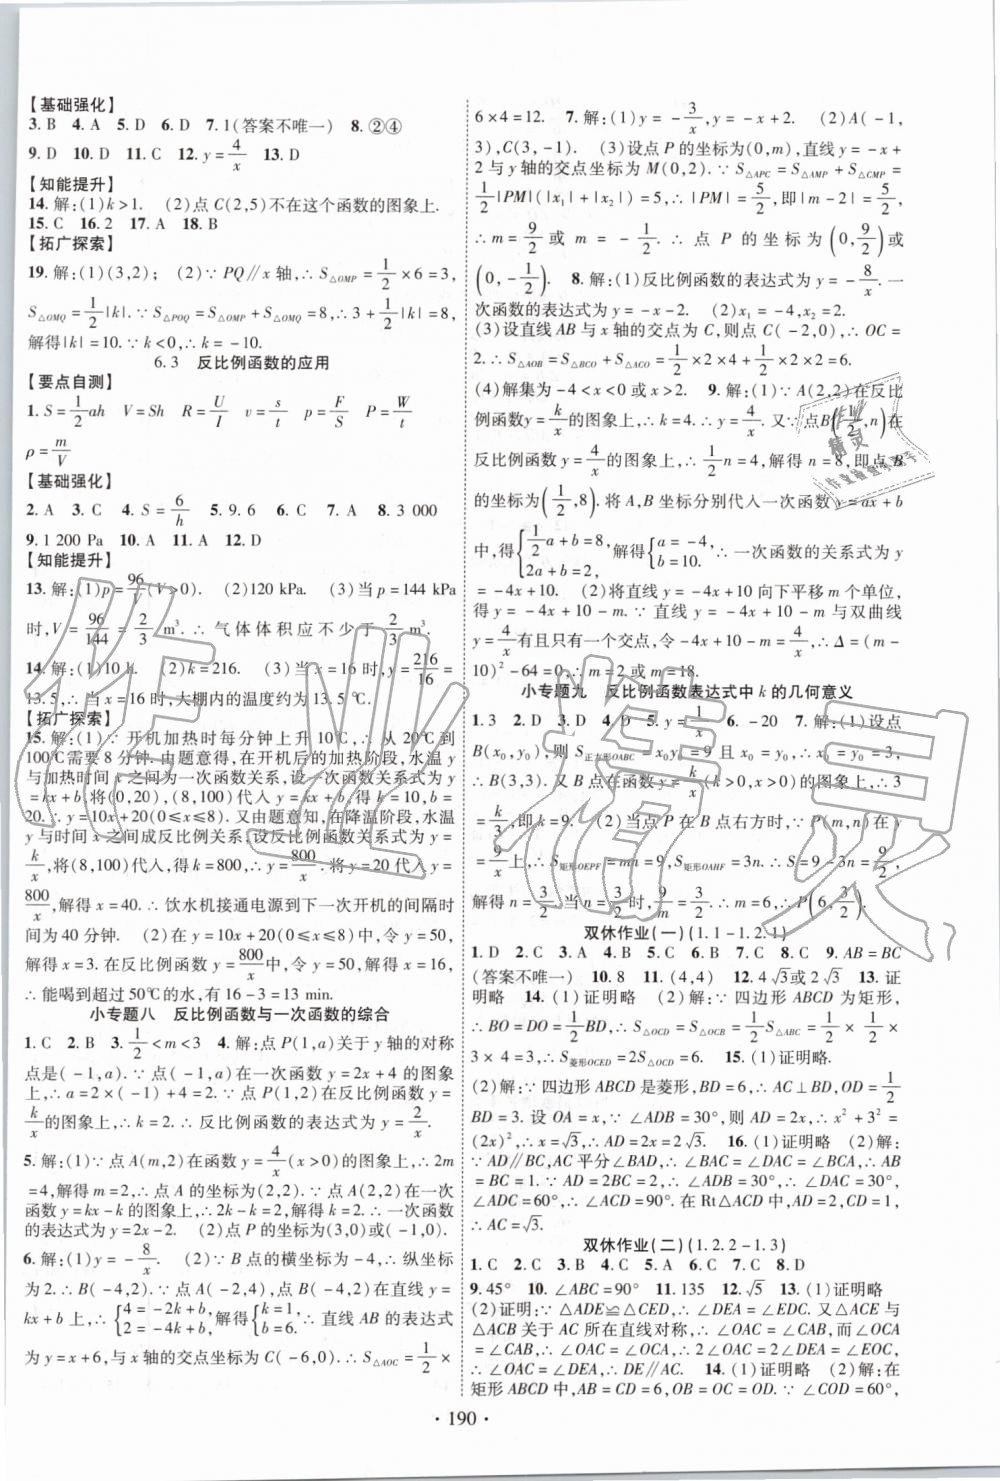 【基础强化】
3. B 4. A 5. D 6. D 7. 1(答案不唯一) 8. ②④
9. D 10. D 11. C 12. y=4/x 13. D
【知能提升】
14. 解:(1)k>1. (2)点 C(2,5)不在这个函数的图象上.
15. C 16. 2 17. A 18. B
【拓广探索】
19. 解:(1)(3,2); (2)∵PQ∥x 轴,∴S△OMP=1/2×6=3,
S△OMQ=1/2|k|.∵S△POQ=S△OMP+S△OMQ=8,∴3+1/2|k|=8,
解得|k|=10.∵k<0,∴k=-10.
6.3 反比例函数的应用
【要点自测】
1. S=1/2ah V=Sh R=U/I v=s/t p=F/S P=W/t
ρ=m/V
【基础强化】
2. A 3. C 4. S=6/h 5. 9.6 6. C 7. A 8. 3 000
9. 1 200 Pa 10. A 11. A 12. D
【知能提升】
13. 解:(1)p=96/V(V>0). (2)120 kPa. (3)当 p=144 kPa
时,V=96/144=2/3 m³.∴气体体积应不少于2/3 m³.
14. 解:(1)10 h. (2)k=216. (3)当 x=16 时,y=216/16=
13.5,∴当 x=16 时,大棚内的温度约为 13.5 ℃.
【拓广探索】
15. 解:(1)∵开机加热时每分钟上升 10℃,∴从 20℃到
100℃需要 8 分钟.由题意得,在开机后的加热阶段,水温 y
与加热时间 x 之间为一次函数关系,设一次函数关系式为 y
=kx+b,将(0,20),(8,100)代入 y=kx+b,得 k=10,b=
20.∴y=10x+20(0≤x≤8).又由题意知,在降温阶段,水温
y 与时间 x 之间成反比例关系,设反比例函数关系式为 y=
k/x,将(8,100)代入,得 k=800,∴y=800/x.将 y=20 代入 y=
800/x,解得 x=40.∴饮水机接通电源到下一次开机的间隔时
间为 40 分钟. (2)在 y=10x+20(0≤x≤8)中,令 y=50,
解得 x=3.在反比例函数 y=800/x中,令 y=50,解得 x=16,
∴能喝到超过 50℃的水,有 16-3=13 min.
小专题八 反比例函数与一次函数的综合
1. C 2. B 3. 1/2<m<3 4. 解:点 P(1,a)关于 y 轴的对称
点是(-1,a).∵点(-1,a)在一次函数 y=2x+4 的图象
上,∴a=2×(-1)+4=2.∵点 P(1,2)在反比例函数 y=
k/x的图象上,∴k=2.∴反比例函数的表达式为 y=2/x.
5. 解:(1)∵点 A(m,2)在函数 y=4/x(x>0)的图象上,∴2m
=4,解得 m=2,∴点 A 的坐标为(2,2).∵点 A(2,2)在一次
函数 y=kx-k 的图象上,∴2k-k=2,解得 k=2.∴一次函
数的表达式为 y=2x-2. (2)点 P 的坐标为(3,0)或(-1,0).
6. 解:(1)y=-8/x. (2)∵B 点的横坐标为-4,∴纵坐标
为 2,∴B(-4,2).∵点 A(-2,4),点 B(-4,2)在直线 y=
kx+b 上,∴{4=-2k+b, 2=-4k+b,解得{k=1, b=6.∴直线 AB 的表达式
为 y=x+6,与 x 轴的交点坐标为 C(-6,0).∴S△AOC=1/2×
6×4=12. 7. 解:(1)y=-3/x,y=-x+2. (2)A(-1,
3),C(3,-1). (3)设点 P 的坐标为(0,m),直线 y=-x+
2 与 y 轴的交点坐标为 M(0,2).∵S△APC=S△AMP+S△CMP=
1/2|PM|(|x₁|+|x₂|)=5,∴|PM|=5/2,即|m-2|=5/2,
∴m=9/2或 m=-1/2.∴点 P 的坐标为(0,9/2)或
(0,-1/2). 8. 解:(1)反比例函数的表达式为 y=-8/x.一
次函数的表达式为 y=-x-2. (2)x₁=-4,x₂=2.
(3)设直线 AB 与 x 轴的交点为 C,则点 C(-2,0),∴OC=
2.∴S△AOB=S△BCO+S△ACO=1/2×2×4+1/2×2×2=6.
(4)解集为-4<x<0 或 x>2. 9. 解:(1)∵A(2,2)在反比
例函数 y=k/x的图象上,∴k=4,∴y=4/x.又∵点 B(1/2,n)在
反比例函数 y=4/x的图象上,∴1/2n=4,解得 n=8,即点 B
的坐标为(1/2,8).将 A,B 坐标分别代入一次函数 y=ax+b
中,得{1/2a+b=8, 2a+b=2,解得{a=-4, b=10.∴一次函数的关系式为 y
=-4x+10. (2)将直线 y=-4x+10 向下平移 m 个单位,
得 y=-4x+10-m.∵直线 y=-4x+10-m 与双曲线
y=4/x有且只有一个交点,令-4x+10-m=4/x,∴Δ=(m-
10)²-64=0,∴m=2 或 m=18.
小专题九 反比例函数表达式中 k 的几何意义
1. 3 2. D 3. D 4. D 5. y=1/x 6. -20 7. 解:(1)设点
B(x₀,y₀),则 S正方形OABC=x₀y₀=9 且 x₀=y₀,∴x₀=y₀=3,
∴B(3,3).又 B 点在函数 y=k/x(k>0,x>0)的图象上,∴3
=k/3,即 k=9. (2)当点 P 在 B 点右方时,∵P(m,n)在 y
=9/x上,∴S矩形OEPF=mn=9,S矩形OAHF=3n.∴S=9-3n=9/2,
解得 n=3/2,当 n=3/2时,m=6,∴P(6,3/2).
双休作业(一)(1.1-1.2.1)
1. D 2. C 3. A 4. B 5. C 6. D 7. C 8. C 9. AB=BC
(答案不唯一) 10. 8 11. (4,4) 12. 4√3或 2√3 13. 证
明略 14. (1)证明略 (2)解:∵四边形 ABCD 为矩形,
∴BO=DO=1/2BD,∴S△OCD=S△OCB=1/2S△ABC=1/2×
3×4=3,∴S菱形OCED=2S△OCD=6. 15. (1)证明略.
(2)解:∵四边形 ABCD 是菱形,∴AC⊥BD,∴OB=1/2
BD=3.设 OA=x,∵∠ADB=30°,则 AD=2x,∴x²+3²=
(2x)²,∴x=√3,∴AD=2x=2√3. 16. (1)证明略 (2)解:
∵AD∥BC,AC 平分∠BAD,∴∠BAC=∠DAC=∠ACB,∴AB
=BC=1.∵∠ADB=30°,∴∠BAC=∠DAC=30°,
∠ADC=60°,∴∠ACD=90°.在 Rt△ACD 中,AD=2,
∴AC=√3.
双休作业(二)(1.2.2-1.3)
1. C 2. C 3. B 4. C 5. A 6. C 7. C 8. D
9. 45° 10. ∠ABC=90° 11. 135 12. √5 13. (1)证明略
(2)证明:∵△ADE≌△CED,∴∠DEA=∠EDC.又△ACE与
△ACB 关于 AC 所在直线对称,∴∠OAC=∠CAB,而∠OCA
=∠CAB,∴∠OAC=∠OCA,∴2∠OAC=2∠DEA=∠EOC,
∴∠OAC=∠DEA,∴DE∥AC. 14. (1)证明略 (2)解:在
矩形 ABCD 中,AC=BD=6,OB=OC=OD.∵∠COD=60°,
· 190 ·
作业精灵